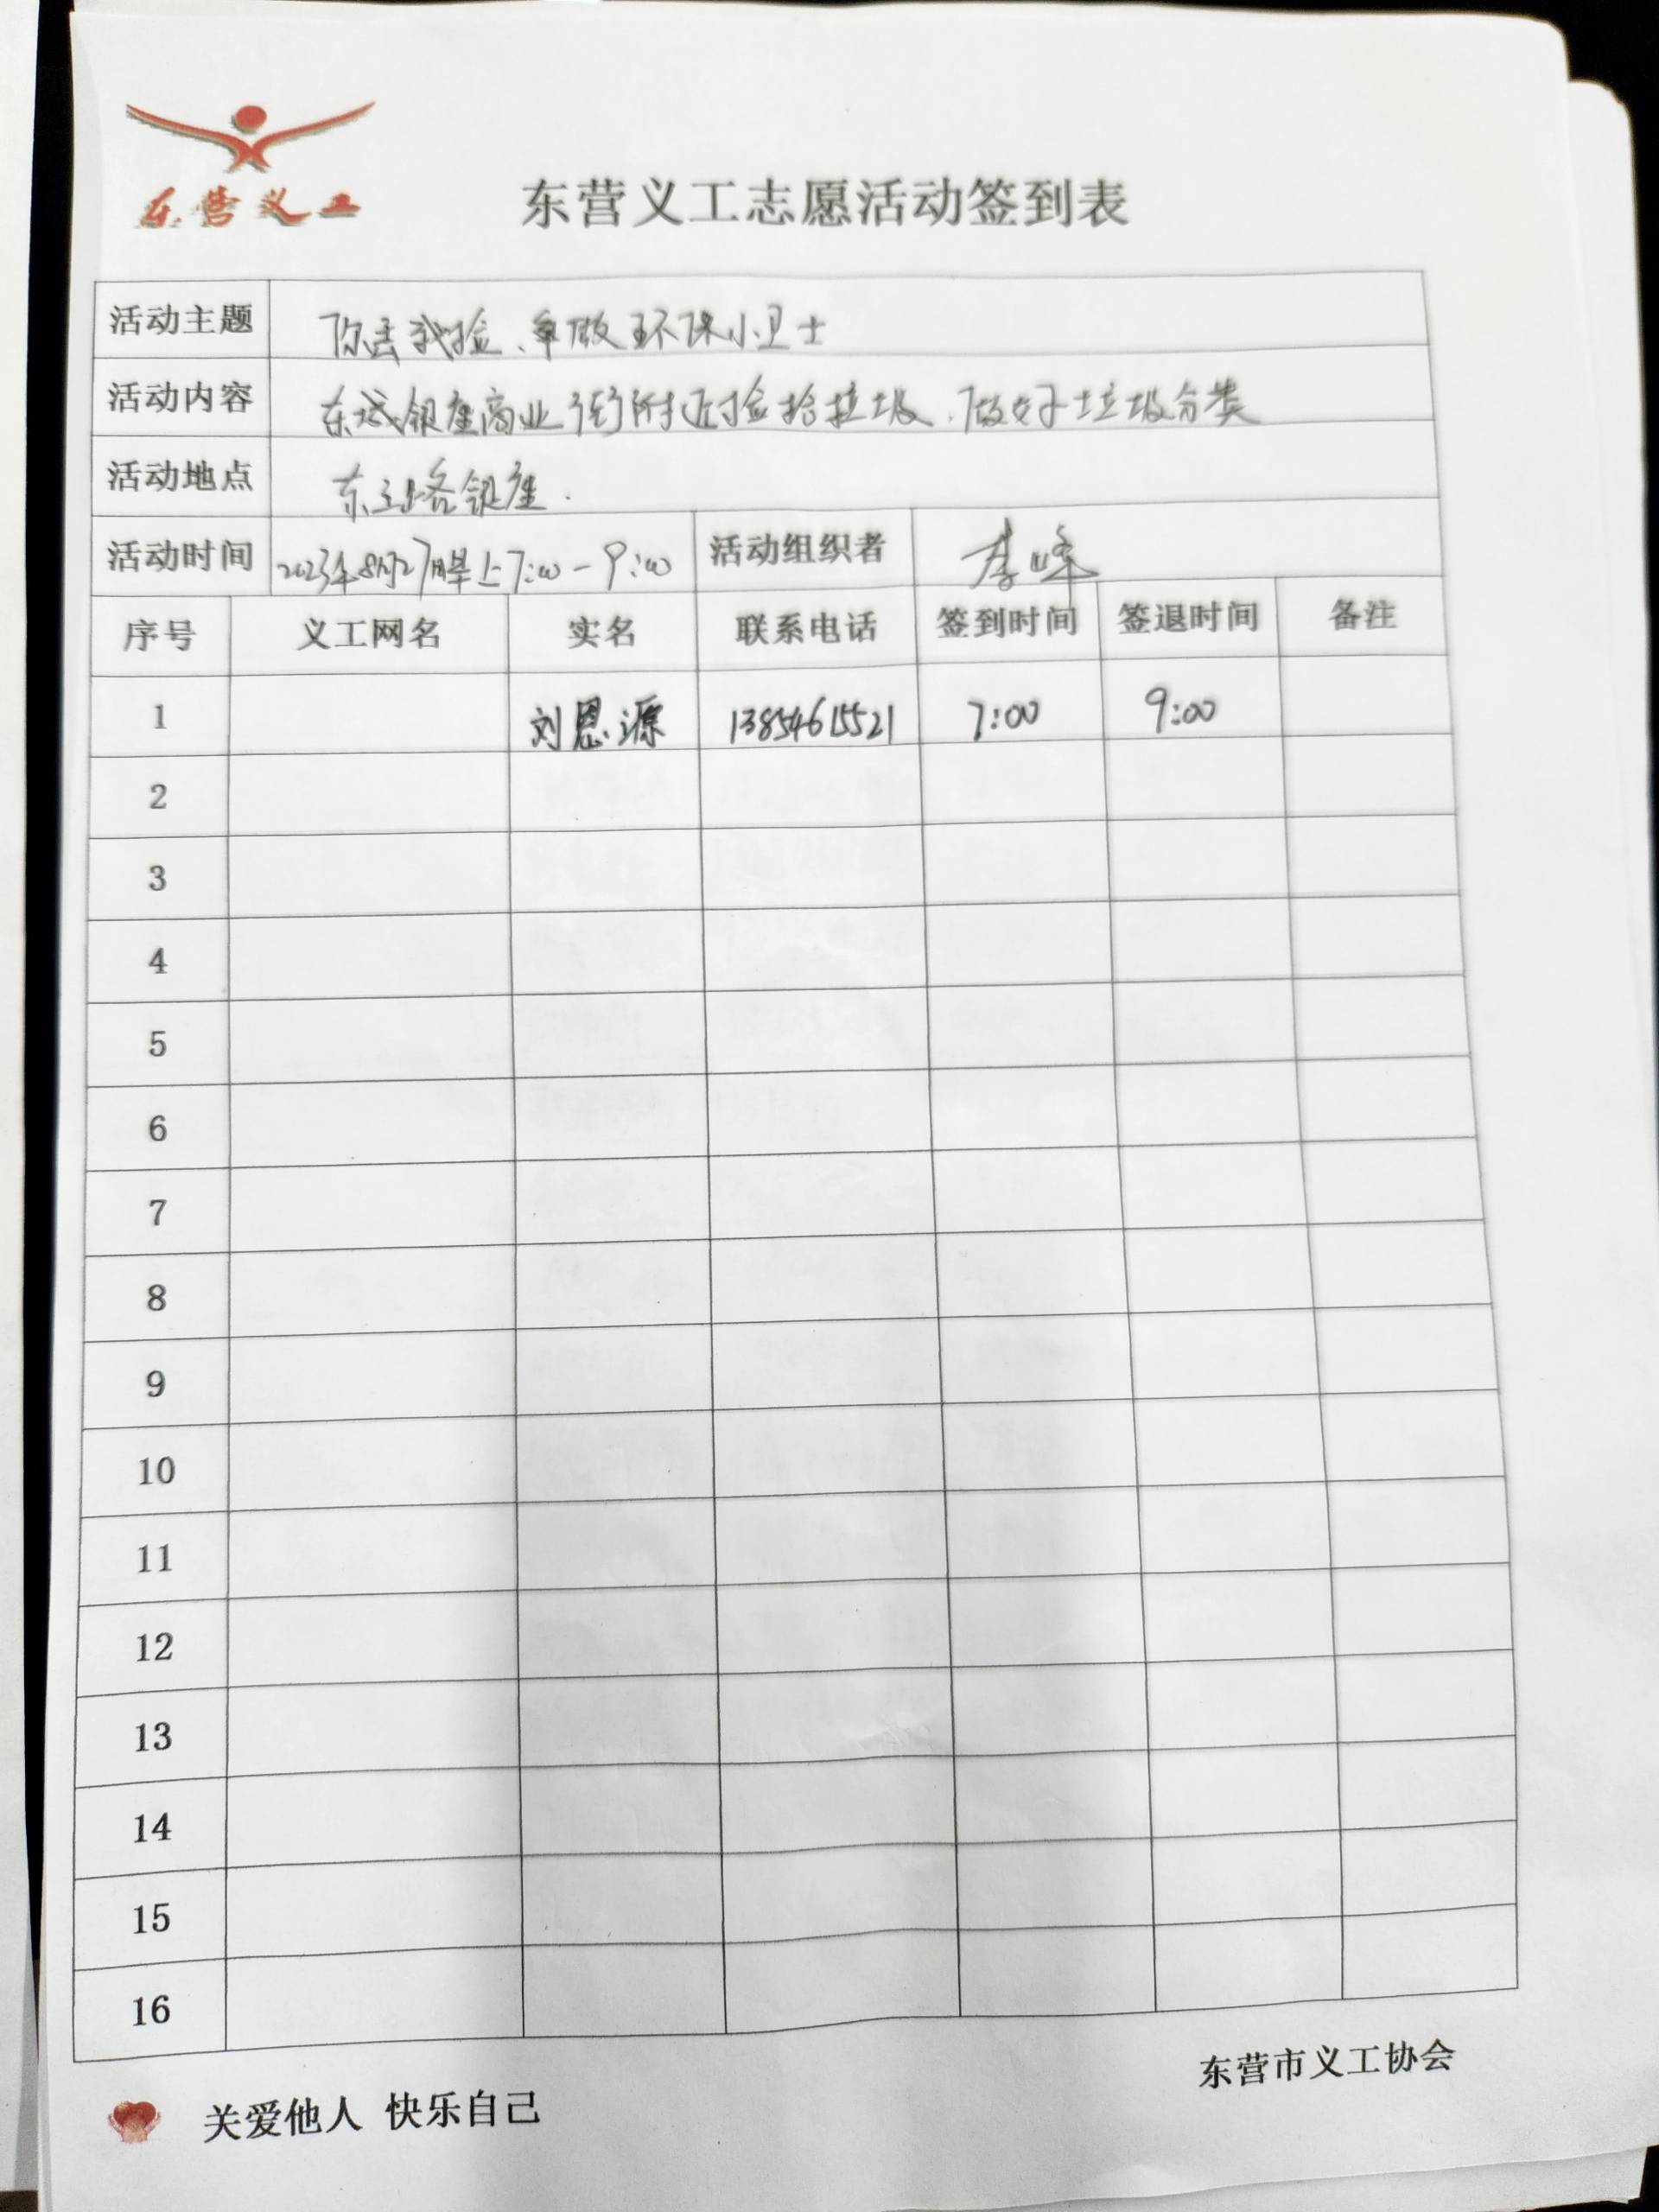 东营义工
东营义工志愿活动签到表
活动主题 你丢我捡、争做环保小卫士
活动内容 东城银座商业街附近捡拾垃圾、做好垃圾分类
活动地点 东三路银座.
活动时间 2023年8月27日早上7:00-9:00 活动组织者 李峰
序号 义工网名 实名 联系电话 签到时间 签退时间 备注
1 刘恩源 13854615521 7:00 9:00
2
3
4
5
6
7
8
9
10
11
12
13
14
15
16
东营市义工协会
关爱他人 快乐自己